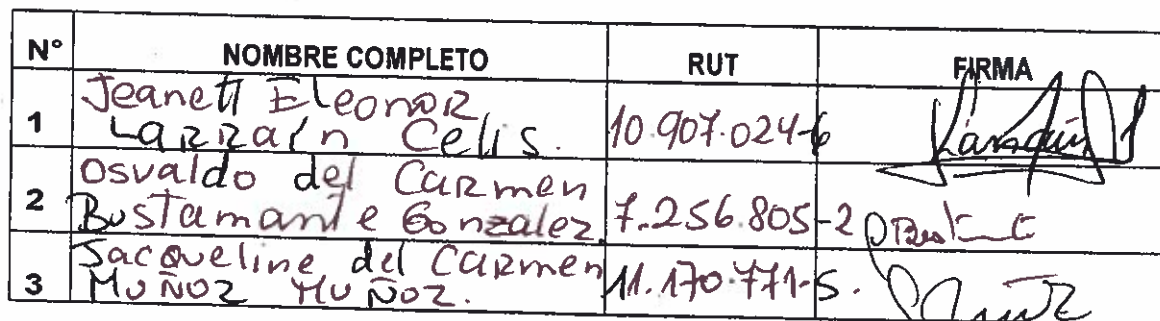 N° NOMBRE COMPLETO RUT FIRMA
Jeanett Eleonor
1 Larraín Celis. 10.907.024-6 Larraín
Osvaldo del Carmen
2 Bustamante Gonzalez 7.256.805-2
Jacqueline del Carmen
3 Muñoz Muñoz. 11.170.771-5. Muñoz